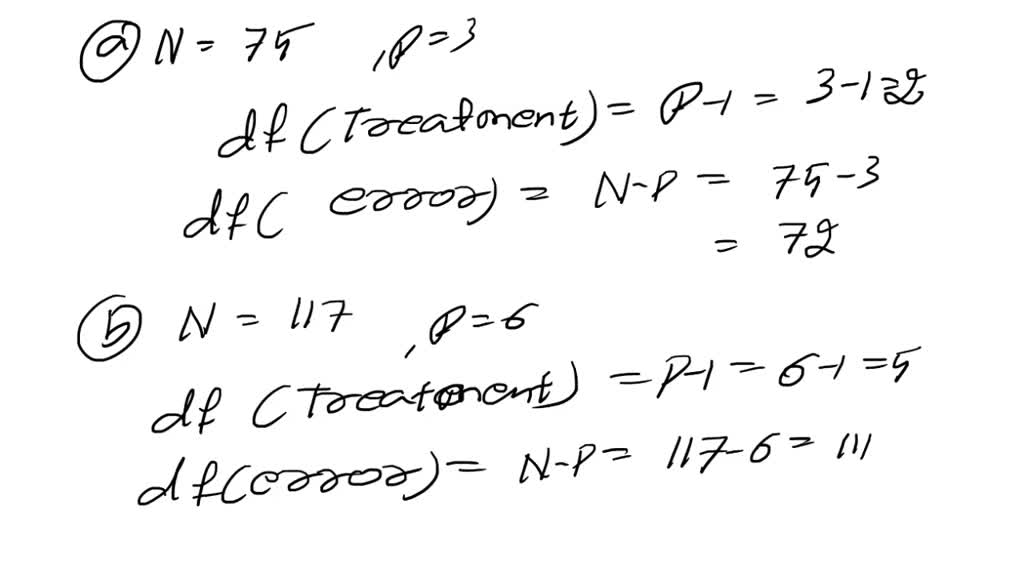 (a) N = 75 , P = 3
df (Treatment) = P-1 = 3-1=2
df( error) = N-P = 75-3
= 72
(b) N = 117 , P = 6
df (Treatment) = P-1 = 6-1 = 5
df(error) = N-P = 117-6 = 111